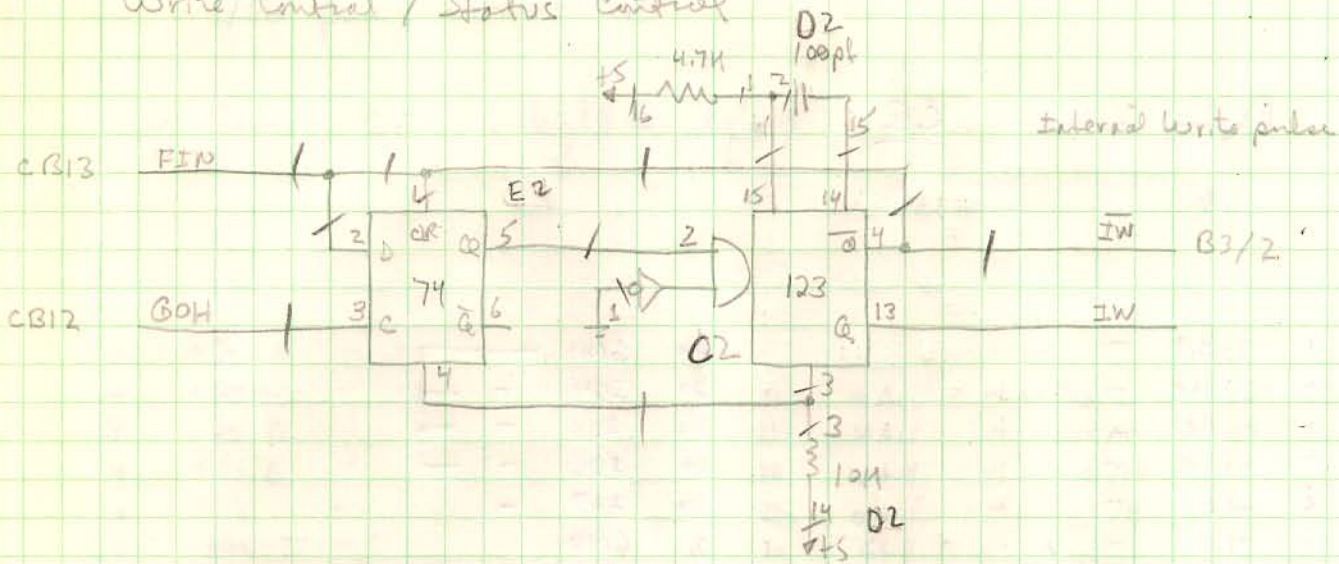 Write Control / Status Control
D2
100pf
4.7K
+5
16
1
2
1
15
Internal Write pulse
CB13
FIN
1
E2
15
14
2
D
CLR
Q
5
2
Q
4
IW
B3/2
74
123
CB12
GOH
3
C
Q
6
1
Q
13
IW
C2
4
3
3
10K
14
D2
+5